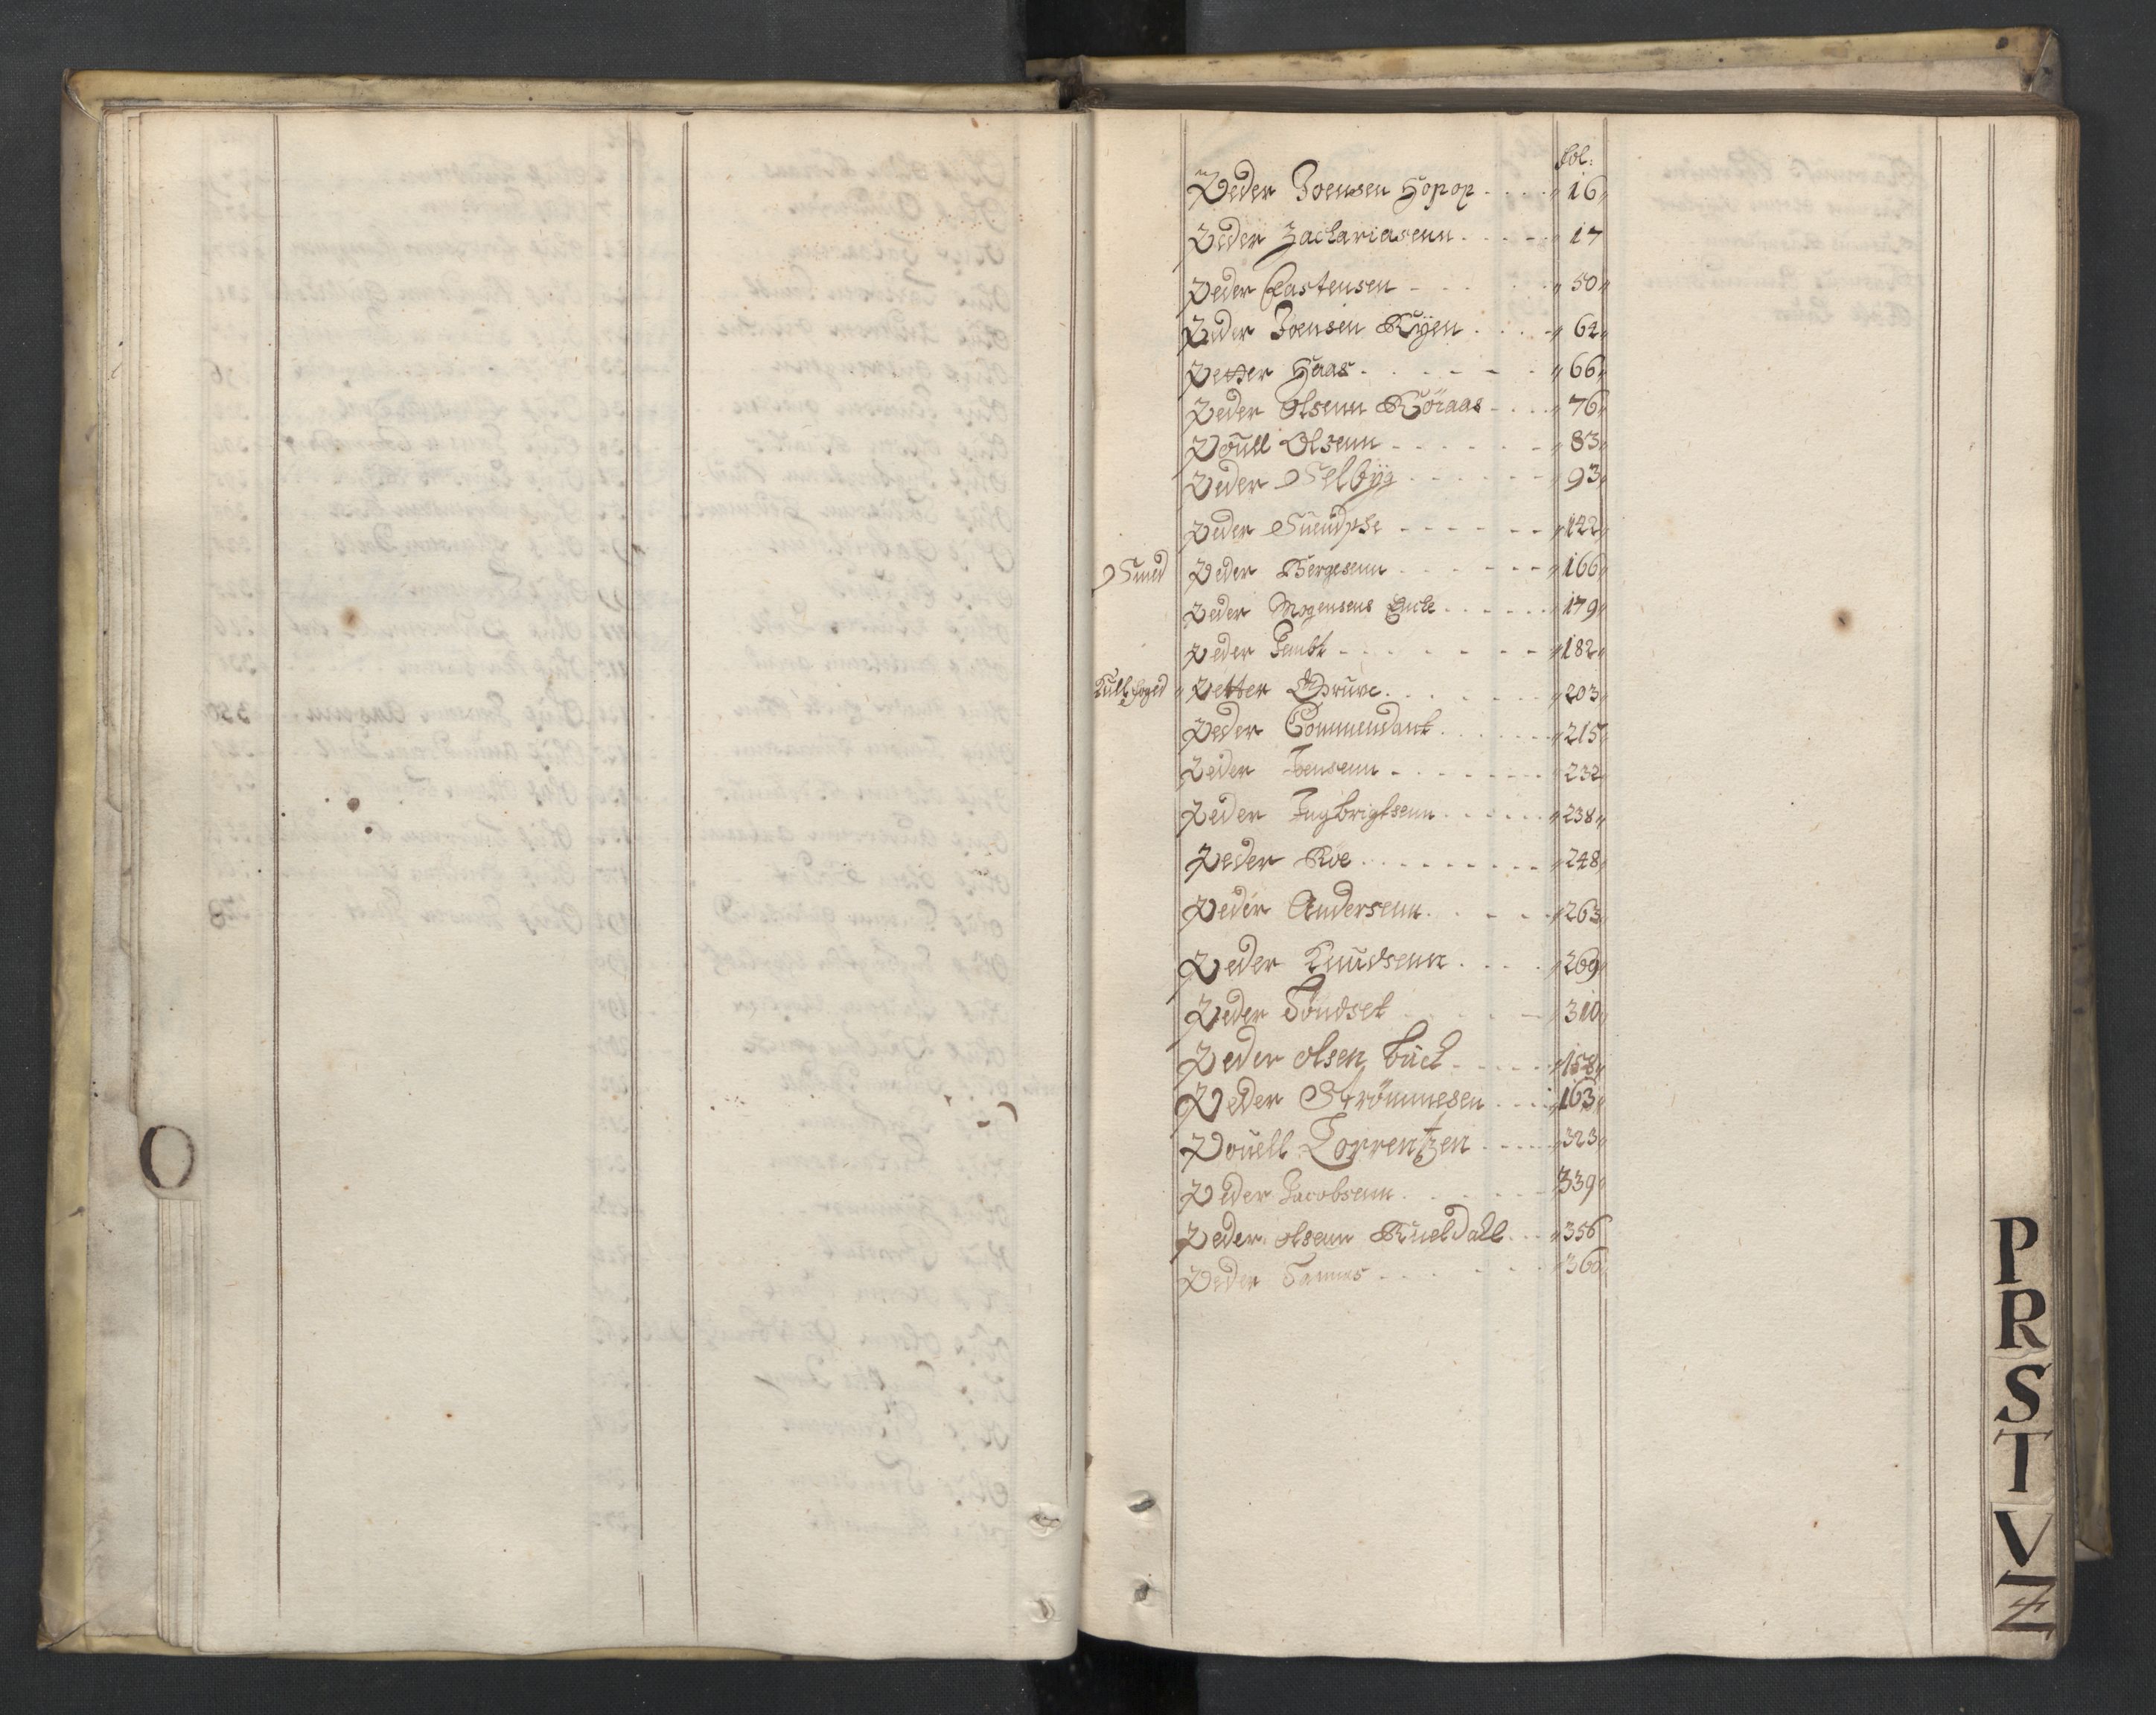 O
fol:
Peder Joensen Hopop . . . . 16
Peder Zachariasenn . . . . 17
Peder Castensen . . . . 50
Peder Joensen Kÿen . . . . 62
Petter Haas . . . . 66
Peder Olsenn Röraas . . . . 76
Poŭll Olsenn . . . . 83
Peder Selbÿg . . . . 93
Peder . . . . 142
Smed Peder Bergesenn . . . . 166
Peder Mogensens Encke . . . . 179
Peder Jembt . . . . 182
Kull foged Petter Prŭve . . . . 203
Peder Commendant . . . . 215
Peder Jensenn . . . . 232
Peder Ingbrigtsenn . . . . 238
Peder Roe . . . . 248
Peder Andersenn . . . . 263
Peder Knŭdsenn . . . . 269
Peder Töndset . . . . 310
Peder olsen būch . . . . 158
Peder Strömmesen . . . . 163
Poŭell Lorrentzen . . . . 323
Peder Jacobsenn . . . . 339
Peder olsenn Rŭeldall . . . 356
Peder Tamnes . . . . 360
P
R
S
T
V
Z